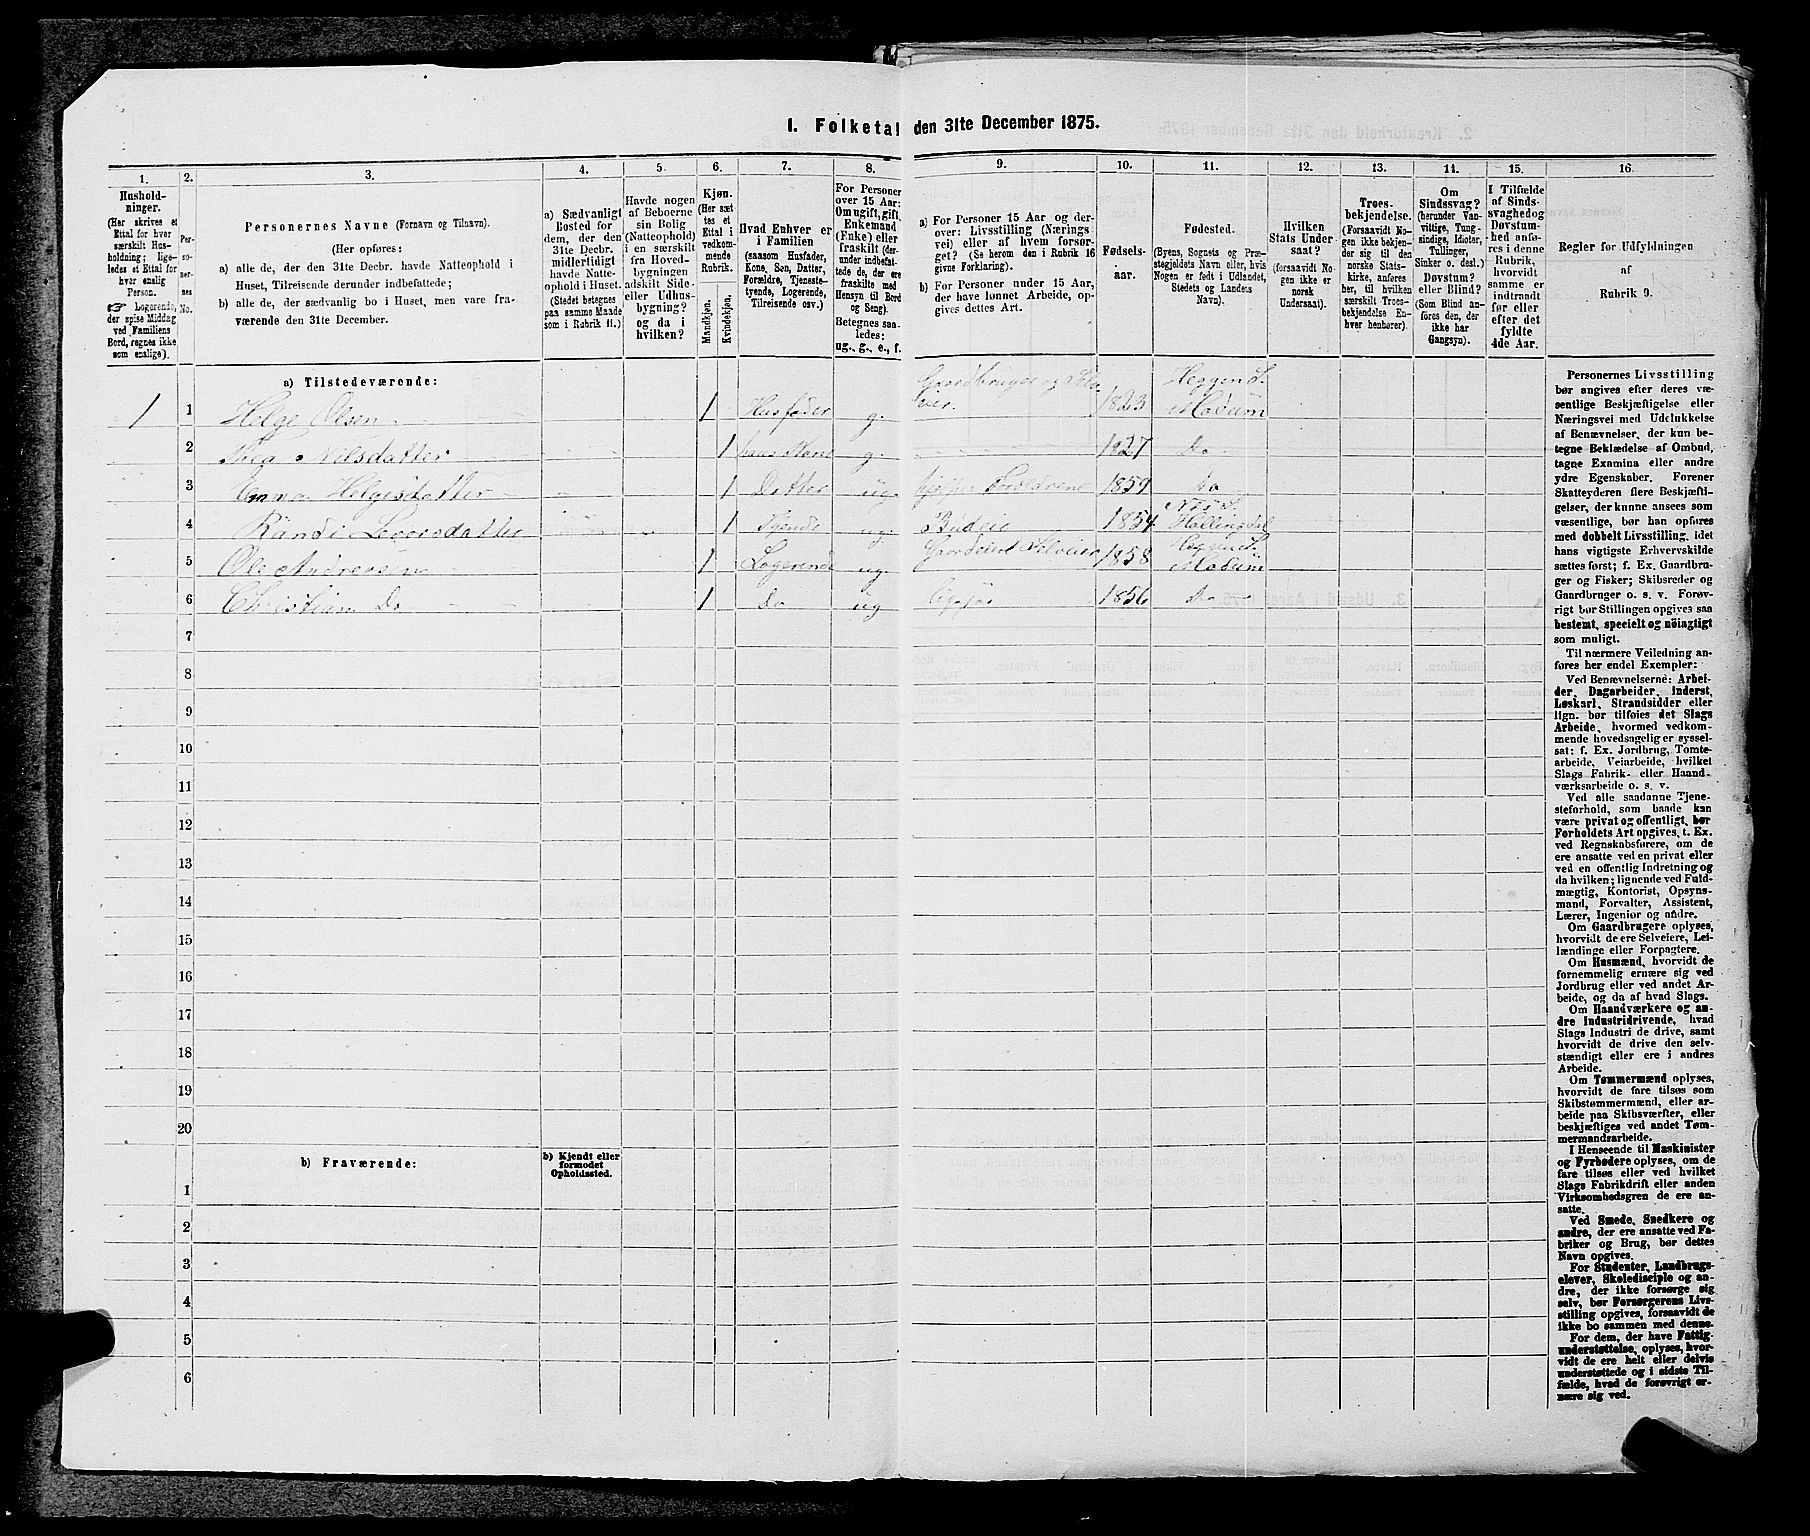 I. Folketal den 31te December 1875.
1. 2. 3. 4. 5. 6. 7. 8. 9. 10. 11. 12. 13. 14. 15. 16.
Hushold-
ninger.
(Her skrives et
Ettal for hver
særskilt Hus-
holdning; lige-
ledes et Ettal for
hver enslig
Person.
☞ Logerende,
der spise Middag
ved Familiens
Bord, regnes ikke
som enslige).
Per-
so-
ner-
nes
No.
Personernes Navne (Fornavn og Tilnavn).
(Her opføres:
a) alle de, der den 31te Decbr. havde Natteophold i
Huset, Tilreisende derunder indbefattede;
b) alle de, der sædvanlig bo i Huset, men vare fra-
værende den 31te December.
a) Sædvanligt
Bosted for
dem, der den
31te Decbr.
midlertidigt
havde Natte-
ophold i Huset.
(Stedet betegnes
paa samme Maade
som i Rubrik 11.)
Havde nogen
af Beboerne
sin Bolig
(Natteophold)
i en særskilt
fra Hoved-
bygningen
adskilt Side-
eller Udhus-
bygning?
og da i
hvilken?
Kjøn.
(Her sæt-
tes et
Ettal i
vedkom-
mende
Rubrik.
Mandkjøn.
Kvindekjøn.
Hvad Enhver er
i Familien
(saasom Husfader,
Kone, Søn, Datter,
Forældre, Tjeneste-
tyende, Logerende,
Tilreisende osv.)
For Personer
over 15 Aar:
Om ugift, gift,
Enkemand
(Enke) eller
fraskilt (der-
under indbefat-
tede de, der ere
fraskilte med
Hensyn til Bord
og Seng).
Betegnes saa-
ledes:
ug., g., e., f.
a) For Personer 15 Aar og der-
over: Livsstilling (Nærings-
vei) eller af hvem forsør-
get? (Se herom den i Rubrik 16
givne Forklaring).
b) For Personer under 15 Aar,
der have lønnet Arbeide, op-
gives dettes Art.
Fødsels-
aar.
Fødested.
(Byens, Sognets og Præ-
stegjeldets Navn eller, hvis
Nogen er født i Udlandet,
Stedets og Landets
Navn).
Hvilken
Stats Under-
saat?
(forsaavidt No-
gen ikke er
norsk
Undersaat).
Troes-
bekjendelse.
(Forsaavidt No-
gen ikke bekjen-
der sig til den
norske Stats-
kirke, anføres
her, til hvilken
særskilt Troes-
bekjendelse En-
hver henhører).
Om
Sindssvag?
(herunder Van-
vittige, Tung-
sindige, Idioter,
Tullinger,
Sinker o. desl.)
Døvstum?
eller Blind?
(Som Blind an-
føres den, der
ikke har
Gangsyn).
I Tilfælde
af Sinds-
svaghed og
Døvstum-
hed anfø-
res i denne
Rubrik,
hvorvidt
samme er
indtraadt
før eller
efter det
fyldte
4de Aar.
Regler for Udfyldningen
af
Rubrik 9.
a) Tilstedeværende:
1 1 Helge Olsen 1 Husfader g. Gaardbruger og Selv-
eier. 1823 Heggen S.
Modum
2 Nilsdatter 1 hans Kone g. 1827 Do
3 Emma Helgesdatter 1 Datter ug. hjelper Forældrene 1859 Do
4 Randi 1 Tyende ug. Budeie 1854 Hallingdal
5 Ole Andreasen 1 Logerende ug. Selveier 1858 Heggen S.
Modum
6 Christian Do 1 Do ug 1856 Do
7
8
9
10
11
12
13
14
15
16
17
18
19
20
b) Fraværende:
b) Kjendt eller
formodet
Opholdssted.
1
2
3
4
5
6
Personernes Livsstilling
bør angives efter deres væ-
sentlige Beskjæftigelse eller
Næringsvei med Udelukkelse
af Benævnelser, der kun be-
tegne Beklædelse af Ombud,
tagne Examina eller andre
ydre Egenskaber. Forener
Skatteyderen flere Beskjæfti-
gelser, der kunne ansees som
væsentlige, bør han opføres
med dobbelt Livsstilling, idet
hans vigtigste Erhvervskilde
sættes først; f. Ex. Gaardbru-
ger og Fisker; Skibsreder og
Gaardbruger o. s. v. Forøv-
rigt bør Stillingen opgives saa
bestemt, specielt og nøiagtigt
som muligt.
Til nærmere Veiledning an-
føres her endel Exempler:
Ved Benævnelserne: Arbei-
der, Dagarbeider, Inderst,
Løskarl, Strandsidder eller
lign. bør tilføies det Slags
Arbeide, hvormed vedkom-
mende hovedsagelig er syssel-
sat; f. Ex. Jordbrug, Tomte-
arbeide, Veiarbeide, hvilket
Slags Fabrik- eller Haand-
værksarbeide o. s. v.
Ved alle saadanne Tjene-
steforhold, som baade kan
være privat og offentligt, bør
Forholdets Art opgives, t. Ex.
ved Regnskabsførere, om de
ere ansatte ved en privat eller
ved en offentlig Indretning og
da hvilken; lignende ved Fuld-
mægtig, Kontorist, Opsyns-
mand, Forvalter, Assistent,
Lærer, Ingeniør og andre.
Om Gaardbrugere oplyses,
hvorvidt de ere Selveiere, Lei-
lændinge eller Forpagtere.
Om Husmænd, hvorvidt de
fornemmelig ernære sig ved
Jordbrug eller ved andet Ar-
beide, og da af hvad Slags.
Om Haandværkere og an-
dre Industridrivende, hvad
Slags Industri de drive, samt
hvorvidt de drive den selv-
stændigt eller ere i andres
Arbeide.
Om Tømmermænd oplyses,
hvorvidt de fare tilsøs som
Skibstømmermænd, eller ar-
beide paa Skibsværfter, eller
beskjæftiges ved andet Tøm-
mermandsarbeide.
I Henseende til Maskinister
og Fyrbødere oplyses, om de
fare tilsøs eller ved hvilket
Slags Fabrikdrift eller anden
Virksomhedsgren de ere an-
satte.
Ved Smede, Snedkere og
andre, der ere ansatte ved Fa-
briker og Brug, bør dettes
Navn opgives.
For Studenter, Landbrugs-
elever, Skoledisciple og an-
dre, der ikke forsørge sig
selv, bør Forsørgerens Livs-
stilling opgives, forsaavidt de
ikke bo sammen med denne.
For dem, der have Fattig-
understøttelse, oplyses, hvor-
vidt de ere helt eller delvis
understøttede og i sidste Til-
fælde, hvad de forøvrigt er-
nære sig ved.